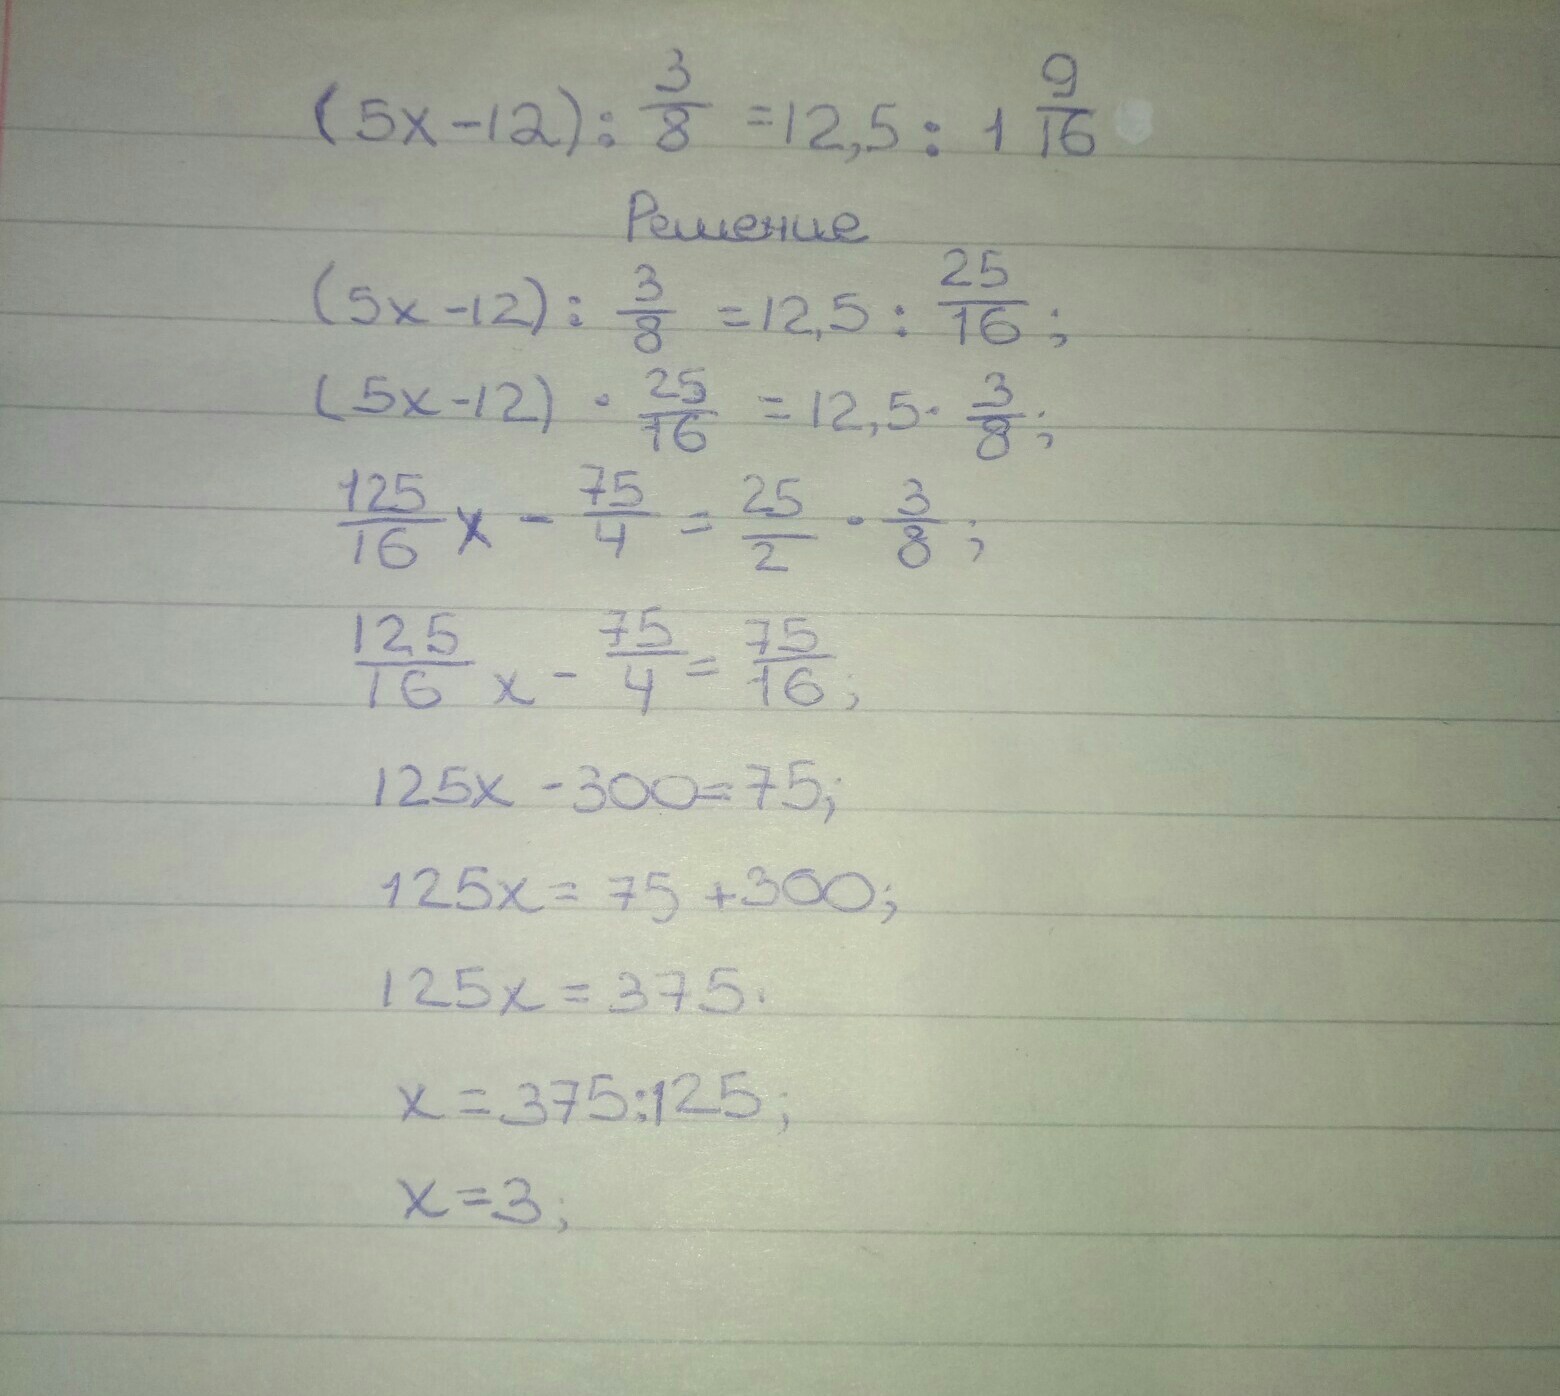 (5x-12): 3/8 =12,5 : 1 9/16
Решение
(5x-12): 3/8 =12,5 : 25/16;
(5x-12) · 25/16 =12,5· 3/8;
125/16 x - 75/4 = 25/2 · 3/8;
125/16 x - 75/4 = 75/16;
125x -300=75;
125x= 75 +300;
125x=375.
x=375:125;
x=3;